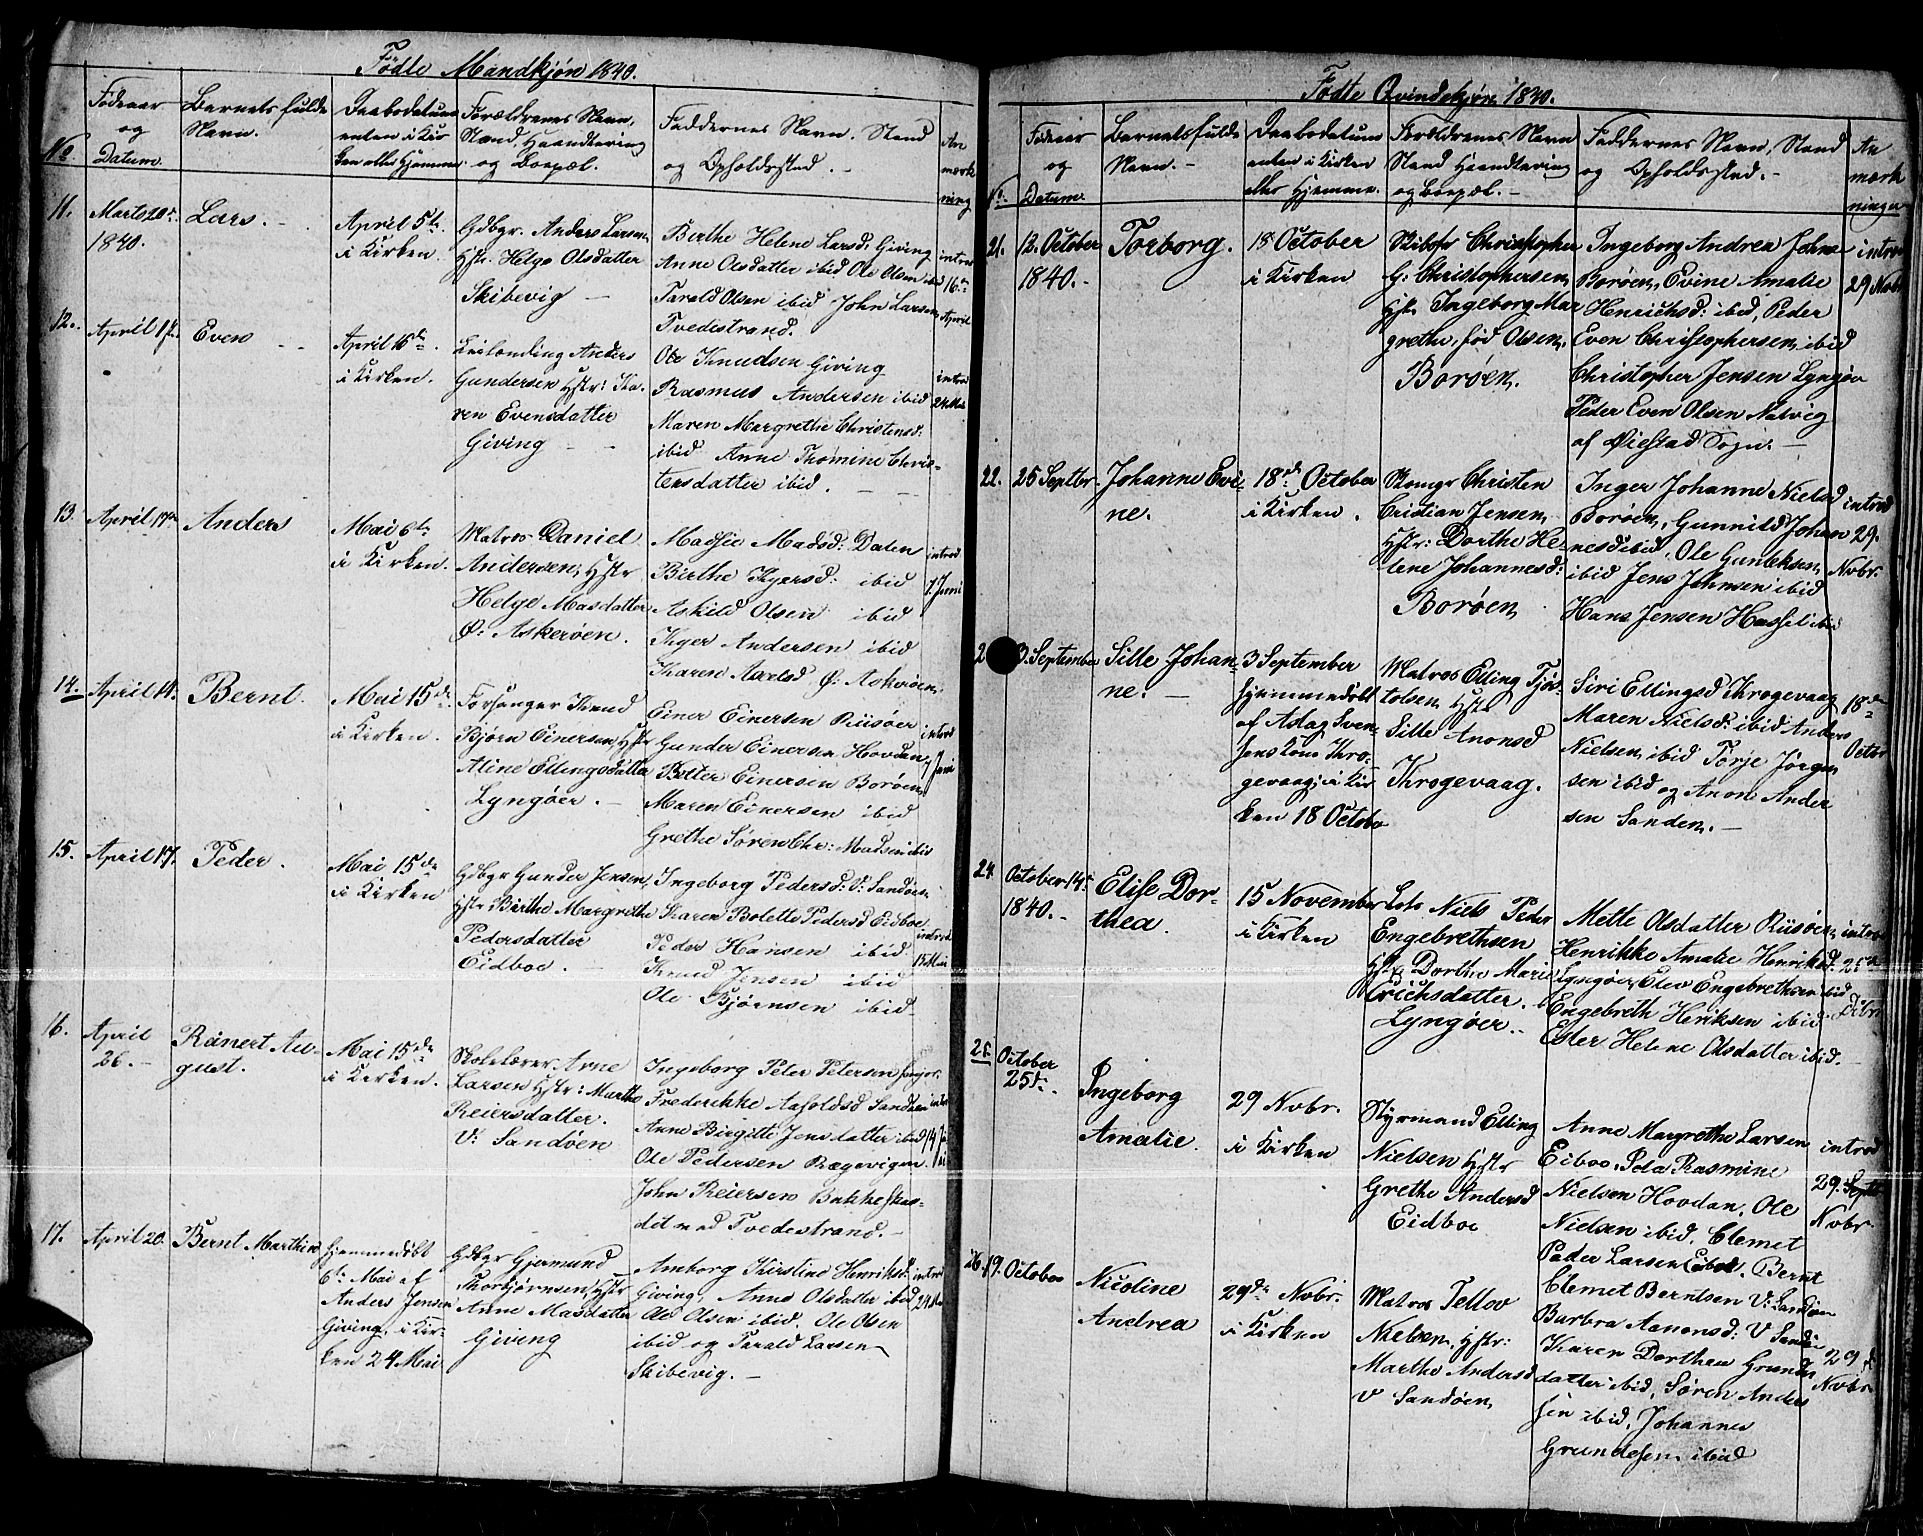 Fødte Mandkjøn 1840.
No
Fødeaar
og
Datum.
Barnets fulde
Navn.
Daabsdatum
enten i Kir
ken eller Hjemme
Forældrenes Navn,
Stand, Haandtering
og Boepæl.
Faddernes Navn, Stand
og Opholdssted. -
An
mærk
ning
11.
Marts 20de
1840.
Lars. -
April 5te
i Kirken.
Gdbgr. Anders Larsen
Hstr. Helge Olsdatter
Skibevig -
Birthe Helene Larsd. Giving
Anne Olsdatter ibid Ole Olsen ibid
Tarald Olsen ibid John Larsen
Tvedestrand.
introd
16de
April
12.
April 1ste
Even - -
April 16de
i Kirken.
Leilænding Anders
Gundersen Hstr: Ka-
ren Evensdatter
Giving - -
Ole Knudsen Giving
Rasmus Andersen ibid
Maren Margrethe Christensd:
ibid Anne Thomine Chris-
tensdatter ibid. - -
introd
24 Mai
13.
April 17de
Anders
Mai 6te
i Kirken.
Matros Daniel
Andersen, Hstr
Helge Masdatter
Ø: Askerøen.
Madsie Madsd: Dalen
Birthe Kgersd: ibid
Askild Olsen ibid
Kger Andersen ibid
Karen Aarlsd Ø: Askerøen
introd
7 Juni
14.
April 14.
Bernt.
Mai 15de
i Kirken.
Forsanger Knud
Bjørn Einersen, Hstr
Aline Ellingsdatter
Lyngøer. -
Einer Einersen Riisøer
Gunder Einersen Hovdan
Petter Einersen Borøen
Maren Einersen ibid
Grethe Søren Chr: Madsen ibid
introd
7 Juni
15.
April 17.
Peder.
Mai 15de
i Kirken
Gdbgr Gunder Jensen,
Hstr Birthe Margrethe
Pedersdatter
Eidboe. -
Ingeborg Pedersd: V: Sandøen
Karen Bolette Pedersd Eidboe
Peder Hansen ibid
Knud Jensen ibid
Ole Bjørnsen ibid
introd
15 Mai
16.
April
26. -
Reinert Au-
gust.
Mai 15de
i Kirken.
Skolelærer Arne
Larsen Hstr: Marthe
Reiersdatter.
V: Sandøen
Ingeborg Peter Petersen senjor
Frederikke Aasoldsd Sandøen
Anne Birgitte Jensdatter ibid
Ole Pedersen Bægevigen
John Reiersen Bakke
ditn ved Tvedestrand. -
introd
14 Ju
ni
17.
April 20.
Bernt Marthin
Hjemmedøbt
6te Mai af
Anders Jensen
Giving, i Kir-
ken 24 Mai
Gdbgr Gjermund
Thorbjørnsen, Hstr
Anne Masdatter
Giving
Amborg Kirstine Henriksd:
Giving, Anne Olsdatter ibid
Ole Olsen ibid. Ole Olsen
ibid og Tarald Larsen
Skibevig. -
introd
24 Mai
Fødte Qvindekjøn 1840.
No.
Fødeaar
og
Datum.
Barnets fulde
Navn. -
Daabsdatum
enten i Kirken
eller Hjemme.
Forældrenes Navn
Stand Haandtering
og Boepæl. -
Faddernes Navn, Stand
og Opholdssted. -
An
mærk
ninger
21.
12. October
1840. -
Torborg.
18 October
i Kirken
Skibsfr Christopher
G: Christophersen,
Hstr. Ingeborg Mar
grethe, fød Olsen,
Borøen.
Ingeborg Andrea Johns
Borøen, Evine Amalie
Henrichsd: ibid, Peder
Even Christophersen ibid
Christopher Jensen Lyngøer
Peder Even Olsen Natvig
af Øiestad Sogn. -
introd
29 Nobr
22.
25 Septbr.
Johanne Evi-
ne.
18de October
i Kirken.
Skomgr Christen
Cristian Jensen,
Hstr: Dorthe He-
lene Johannesd:
Borøen
Inger Johanne Nielsd
Borøen, Gunnild Johan
nesd ibid, Ole Gunleksen,
ibid Jens Johnsen ibid
Hans Jensen Hassel ibid
introd
29.
Nobr.
2
3. September
Sille Johan-
ne. -
3 September
hjemmedøbt
af Aslag Sven
sens Kone Kro-
gevaag; i Kir
ken 18 Octobr
Matros Elling Tjøs-
tolsen, Hstr
Sille Anonsd
Krogevaag.
Siri Ellingsd Krogevaag
Maren Nielsd: ibid Anders
Nielsen, ibid Torje Jørgen
sen ibid og Anon Ander
sen Sanden. -
18de
Octbr
24.
October 14.
1840. -
Elise Dor-
thea.
15 November
i Kirken
Lots Niels Peder
Engebrethsen
Hstr Dorthe Marie
Erichsdatter.
Lyngøer.
Mette Olsdatter Riisøer,
Henrikke Amalie Henriksd:
Lyngøer, Elev Engebrethsen ibid
Engebreth Heriksen ibid.
Ester Helene Olsdatter ibid.
introd
25de
Dcbr
25.
October
25de
Ingeborg
Amalie.
29 Nobr.
i Kirken
Styrmand Elling
Nielsen Hstr
Grethe Andersd
Eidboe
Anne Margrethe Larsen
Eiboe, Pola Rasmine
Nielsen Hovdan, Ole
Nielsen ibid, Clemet
Peder Larsen Eiboe. Bernt
introd
29. Septbr
Nobr
26.
19. October
Nicoline
Andrea
29de Nobr.
i Kirken
Matros Tellev
Nielsen, Hstr:
Marthe Andersd
V Sandøen
Clemet Berntsen V: Sandøen
Barbra Aanonsd: V Sandø
Karen Dorthea Grunde
datter ibid, Søren Anders
sen ibid, Johannes
Grundesen ibid
29de
Nobr